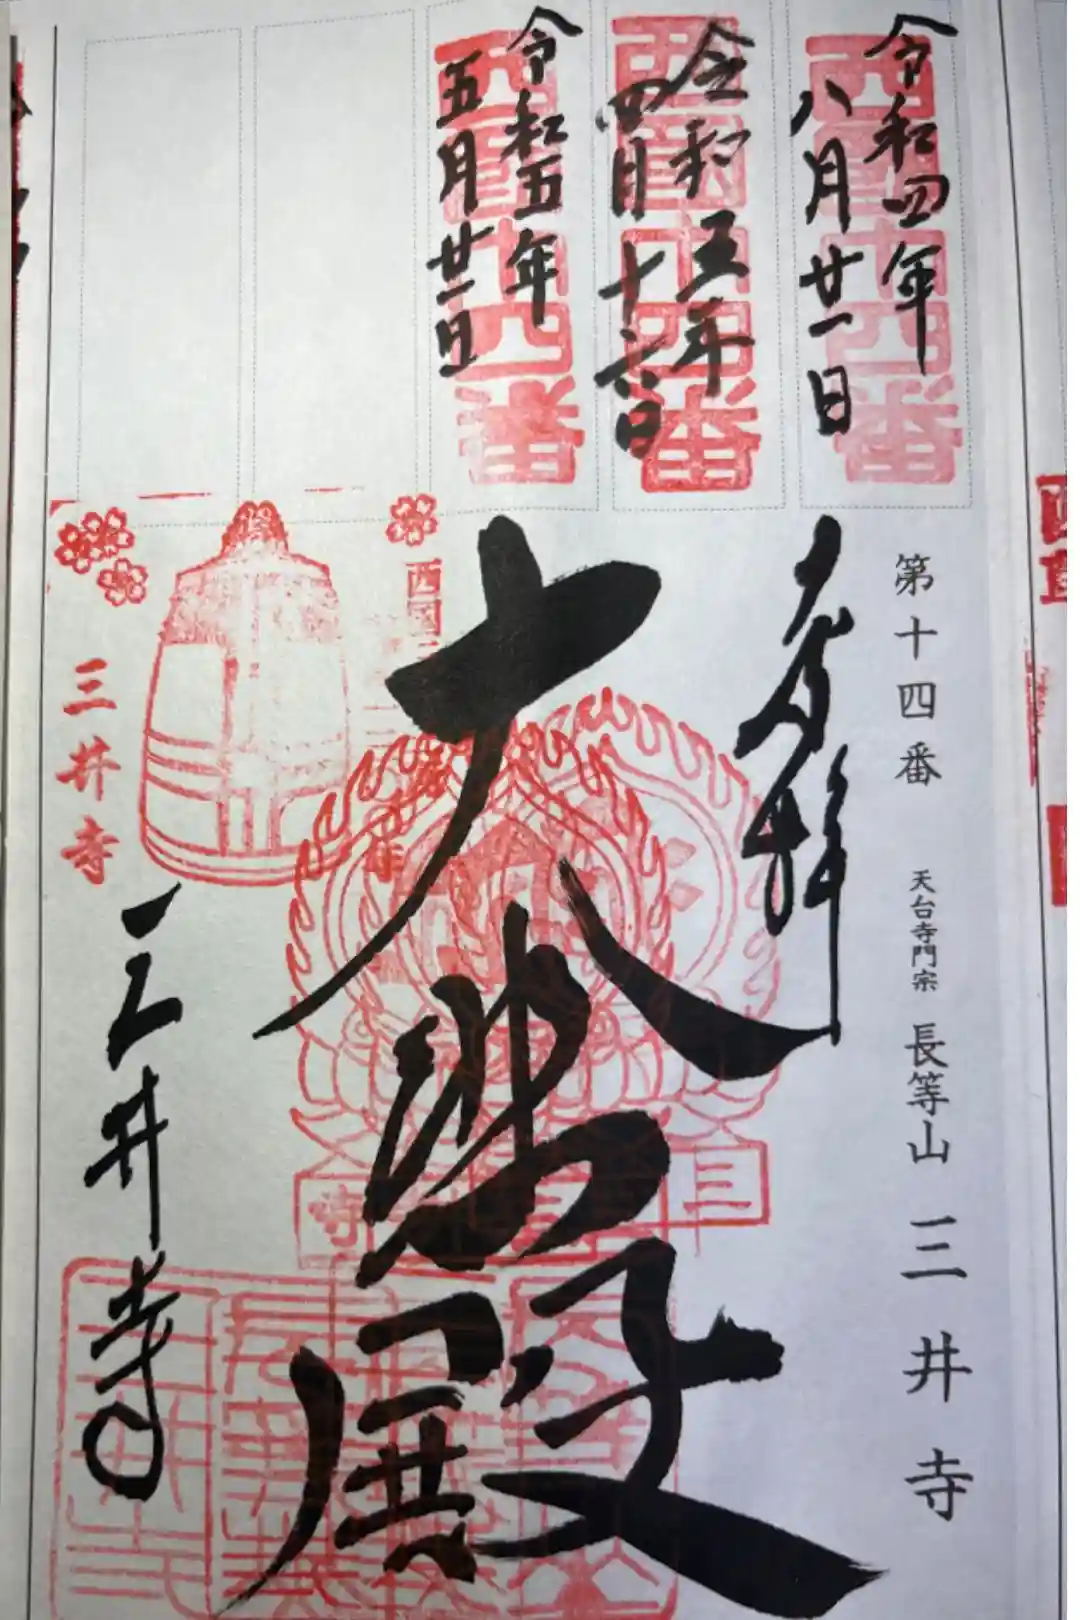 令和四年
八月廿一日
西国十四番
令和五年
四月十六日
西国十四番
令和五年
五月廿一日
西国十四番
第十四番 天台寺門宗 長等山 三井寺
奉拝
大悲殿
三井寺
三井寺
西国三